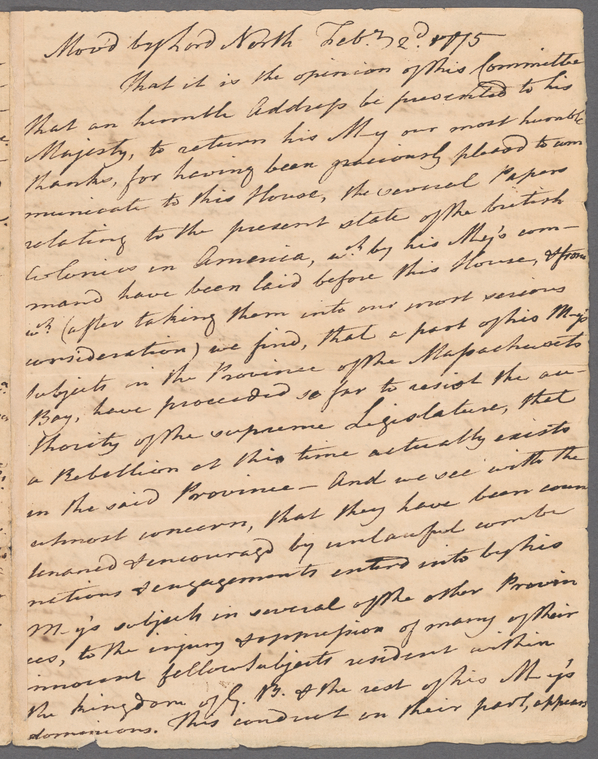 Mov'd by Lord North Feb.ry 2.d 1775
That it is the opinion of this Committee
that an humble Address be presented to his
Majesty, to return his M.y our most humble
thanks, for having been graciously pleas'd to com
municate to this House, the several Papers
relating to the present state of the british
Colonies in America, w.ch by his M.y's com-
mand have been laid before this House, & from
w.ch (after taking them into our most serious
consideration) we find, that a part of his M.y's
subjects in the Province of the Massachusetts
Bay, have proceeded so far to resist the au-
thority of the supreme Legislature, that
a Rebellion at this time actually exists
in the said Province - And we see with the
utmost concern, that they have been coun
tenanced & encourag'd by unlawful combi
nations & engagements enterd into by his
M.y's subjects in several of the other Provin
ces, to the injury & oppression of many of their
innocent fellow subjects resident within
the kingdom of G. B. & the rest of his M.y's
dominions. This conduct on their part, appears